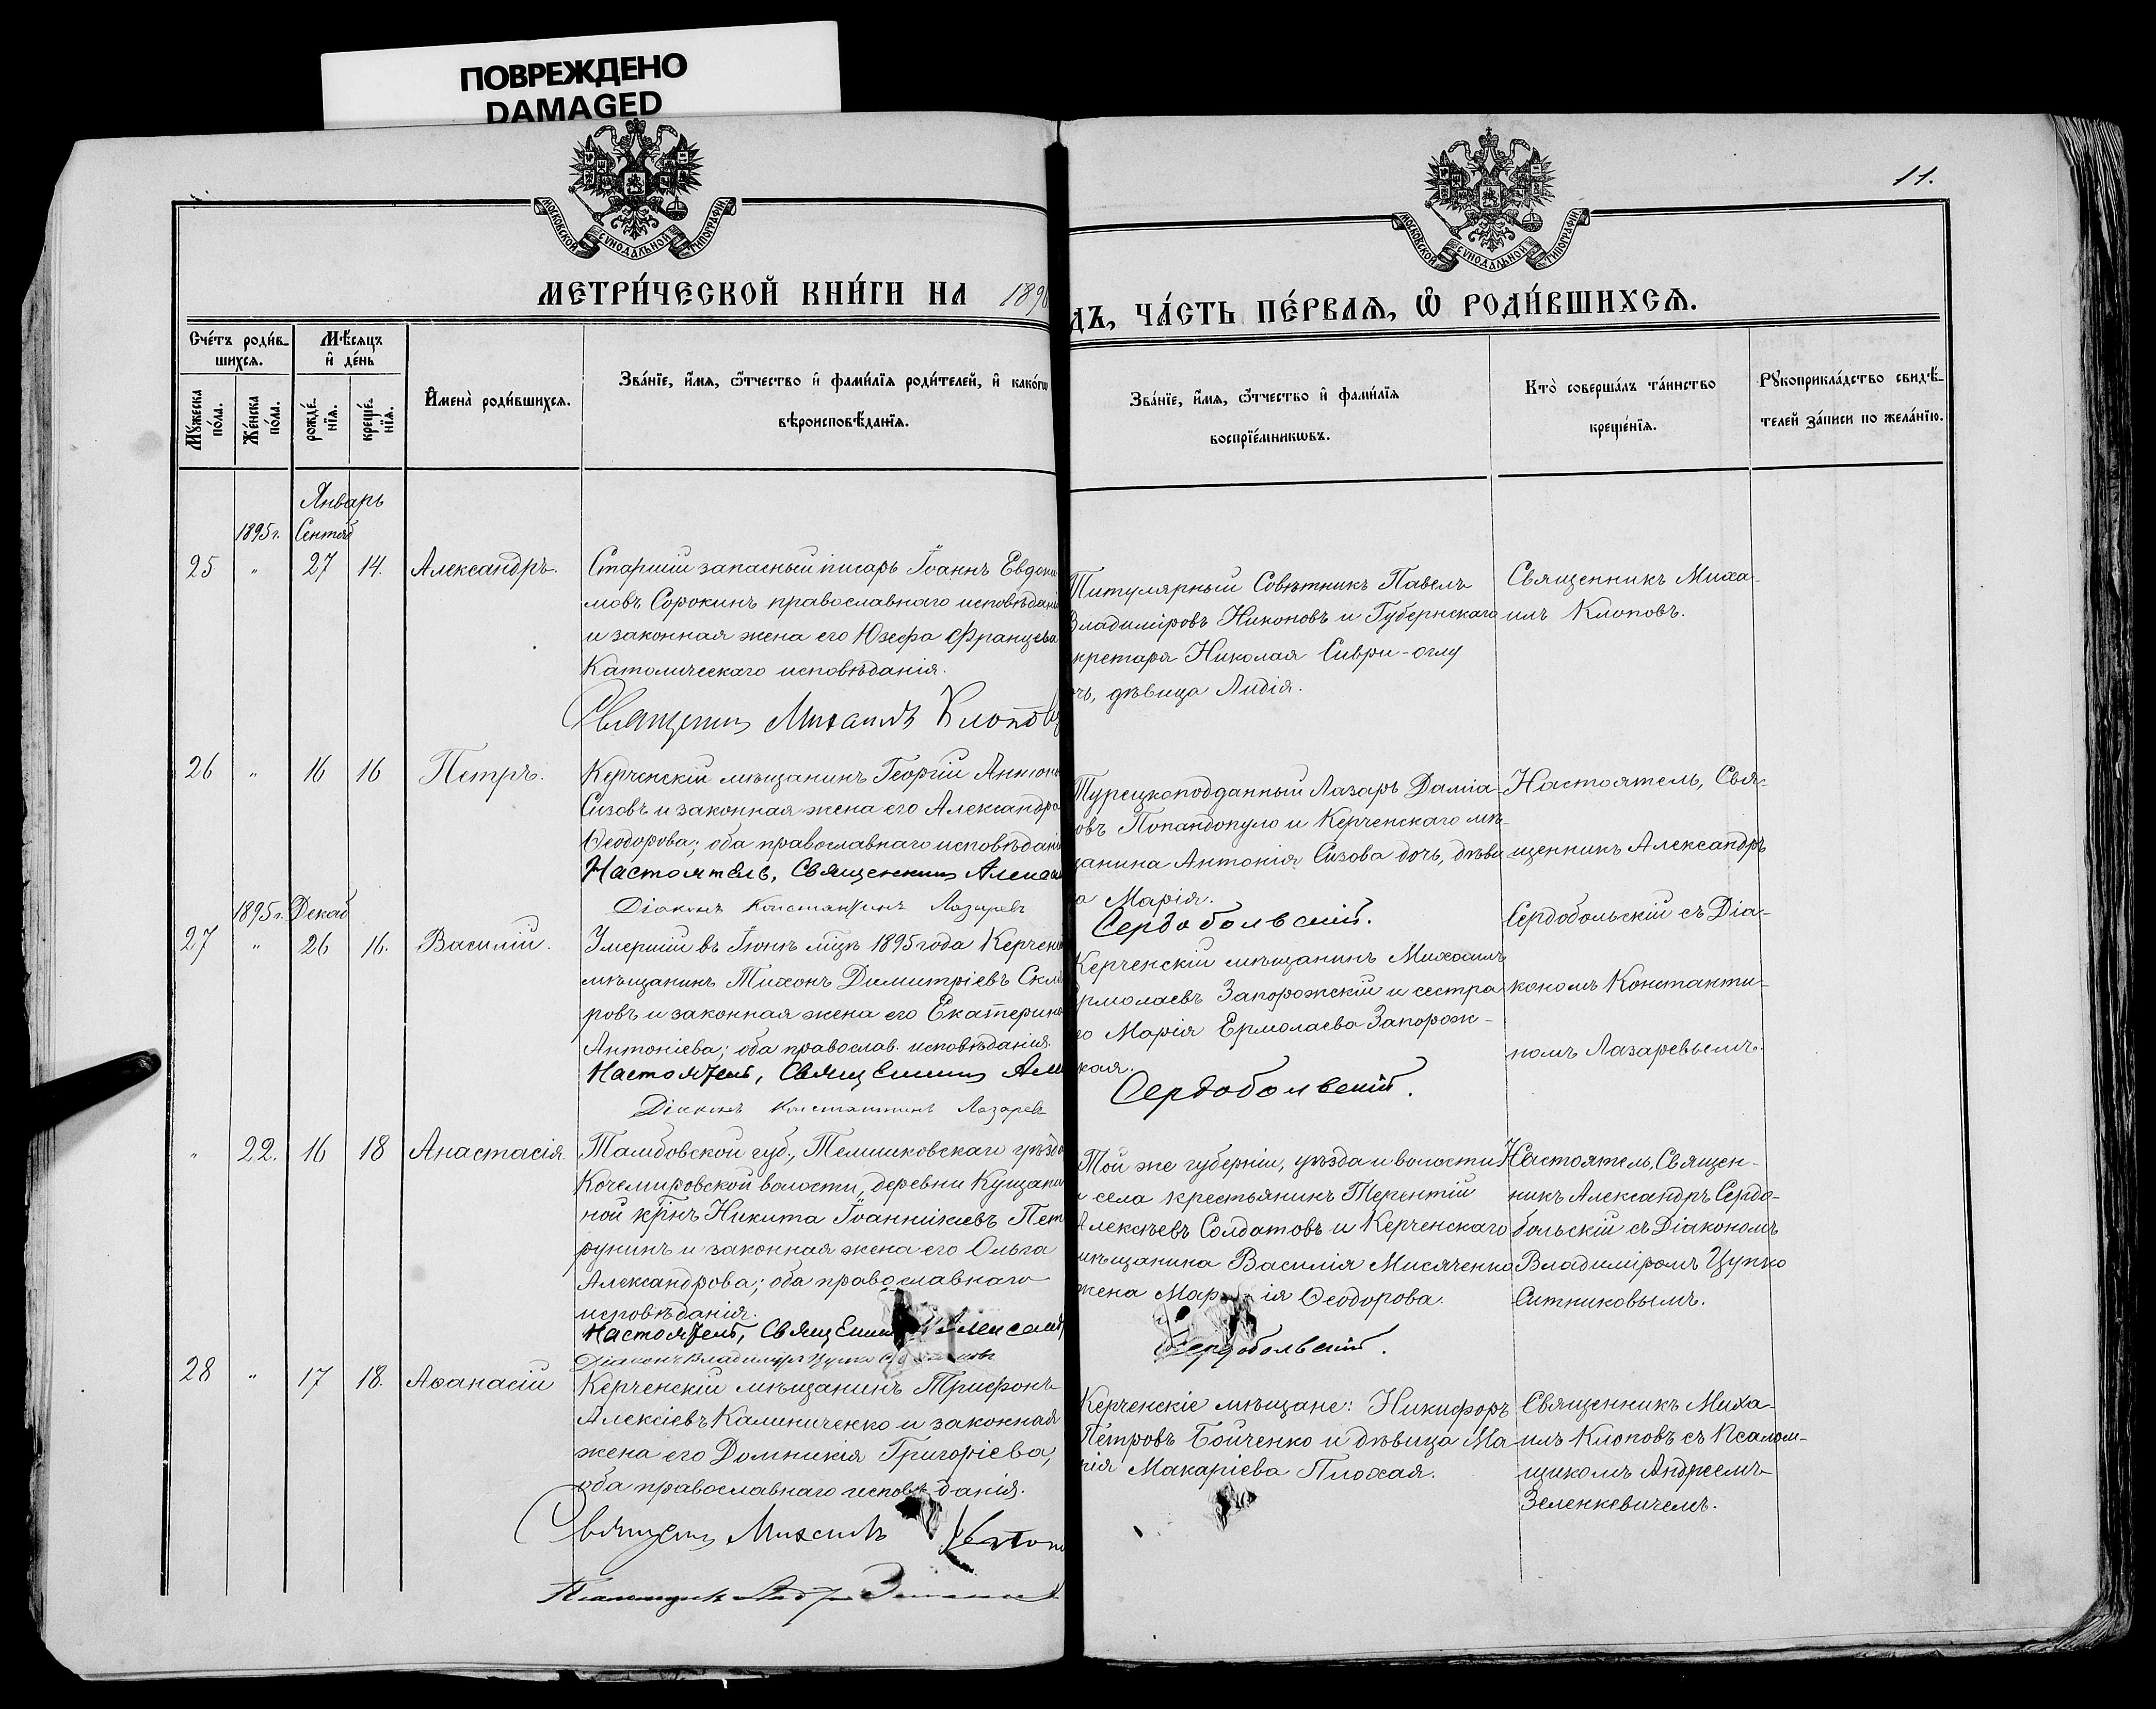 ПОВРЕЖДЕНО
DAMAGED
МОСКОВСКОЙ СѴНОДАЛЬНОЙ ТИПОГРАФІИ
МОСКОВСКОЙ СѴНОДАЛЬНОЙ ТИПОГРАФІИ
11.
МЕТРИ́ЧЕСКОЙ КНИ́ГИ НА 189
ДЪ, ЧА́СТЬ ПЕ́РВАѦ, Ѡ҆ РОДИ́ВШИХСѦ.
Сче́тъ роди́в-
шихсѧ.
Мѣ́сѧцъ
и҆ де́нь
Мꙋ́жеска
по́ла.
Же́нска
по́ла.
рожде́-
нїѧ.
креще́-
нїѧ.
И҆мена̀ роди́вшихсѧ.
Зва́нїе, и҆́мѧ, ѻ҆́тчество и҆ фами́лїѧ роди́телей, и҆ како́гѡ
вѣроисповѣ́данїѧ.
Зва́нїе, и҆́мѧ, ѻ҆́тчество и҆ фами́лїѧ
воспрїе́мникѡвъ.
Кто̀ соверша́лъ та́инство
креще́нїѧ.
Рꙋкоприкла́дство свидѣ́-
телей за́писи по жела́нїю.
Январь
1895 г. Сентяб
25 " 27 14. Александръ.
Старшій запасный писарь Іоаннъ Евдоки
мовъ Сорокинъ православнаго исповѣдані
и законная жена его Юзефа Францева
Католическаго исповѣданія.
Священникъ Михаилъ Клоповъ
Титулярный Совѣтникъ Павелъ
Владиміровъ Никоновъ и Губернскаго
кретаря Николая Сиври-оглу
чь, дѣвица Лидія.
Священникъ Миха-
илъ Клоповъ.
26 " 16 16 Петръ.
Керченскій мѣщанинъ Георгій Антоно
Сизовъ и законная жена его Александра
Ѳеодорова; оба православнаго исповѣдані
Настоятель, Священникъ Алекса
Діаконъ Константинъ Лазаревъ
Турецкоподданный Лазарь Даміа-
овъ Попандопуло и Керченскаго мѣ-
щанина Антонія Сизова дочь, дѣви
а Марія.
Сердобольскій.
Настоятель, Свя-
щенникъ Александръ
Сердобольскій съ Діа-
кономъ Константи-
номъ Лазаревымъ.
1895 г. Декаб
27 " 26 16. Василій.
Умершій въ Іюнѣ мцѣ 1895 года Керченс
мѣщанинъ Тихонъ Димитріевъ Скля
ровъ и законная жена его Екатерина
Антоніева; оба православ. исповѣданія.
Настоятель, Священникъ Але
Діаконъ Константинъ Лазаревъ
Керченскій мѣщанинъ Михаилъ
Ермолаевъ Запорожскій и сестра
го Марія Ермолаева Запорож-
ская.
Сердобольскій.
" 22. 16 18 Анастасія.
Тамбовской губ., Темниковскаго уѣзда
Кочемировской волости, деревни
ной крнъ Никита Іоанникіевъ Пет
рунинъ и законная жена его Ольга
Александрова; оба православнаго
исповѣданія.
Настоятель, Священникъ Александ
Діаконъ Владиміръ Цупко
Той же губерніи, уѣзда и волости
села крестьянинъ Терентій
Алексѣевъ Солдатовъ и Керченскаго
мѣщанина Василія Мисяченко
жена Марія Ѳеодорова.
Сердобольскій.
Настоятель, Священ-
никъ Александръ Сердо-
больскій съ Діакономъ
Владиміромъ Цупко
Ситниковымъ.
28 " 17 18. Аѳанасій
Керченскій мѣщанинъ Трифонъ
Алексіевъ Калиниченко и законная
жена его Домникія Григоріева,
оба православнаго исповѣданія.
Священникъ Михаилъ Клопо
Псаломщикъ Андр
Керченскіе мѣщане: Никифоръ
Петровъ Бойченко и дѣвица Ма
рія Макаріева Плохая.
Священникъ Миха-
илъ Клоповъ съ Псалом-
щикомъ Андреемъ
Зеленкевичемъ.